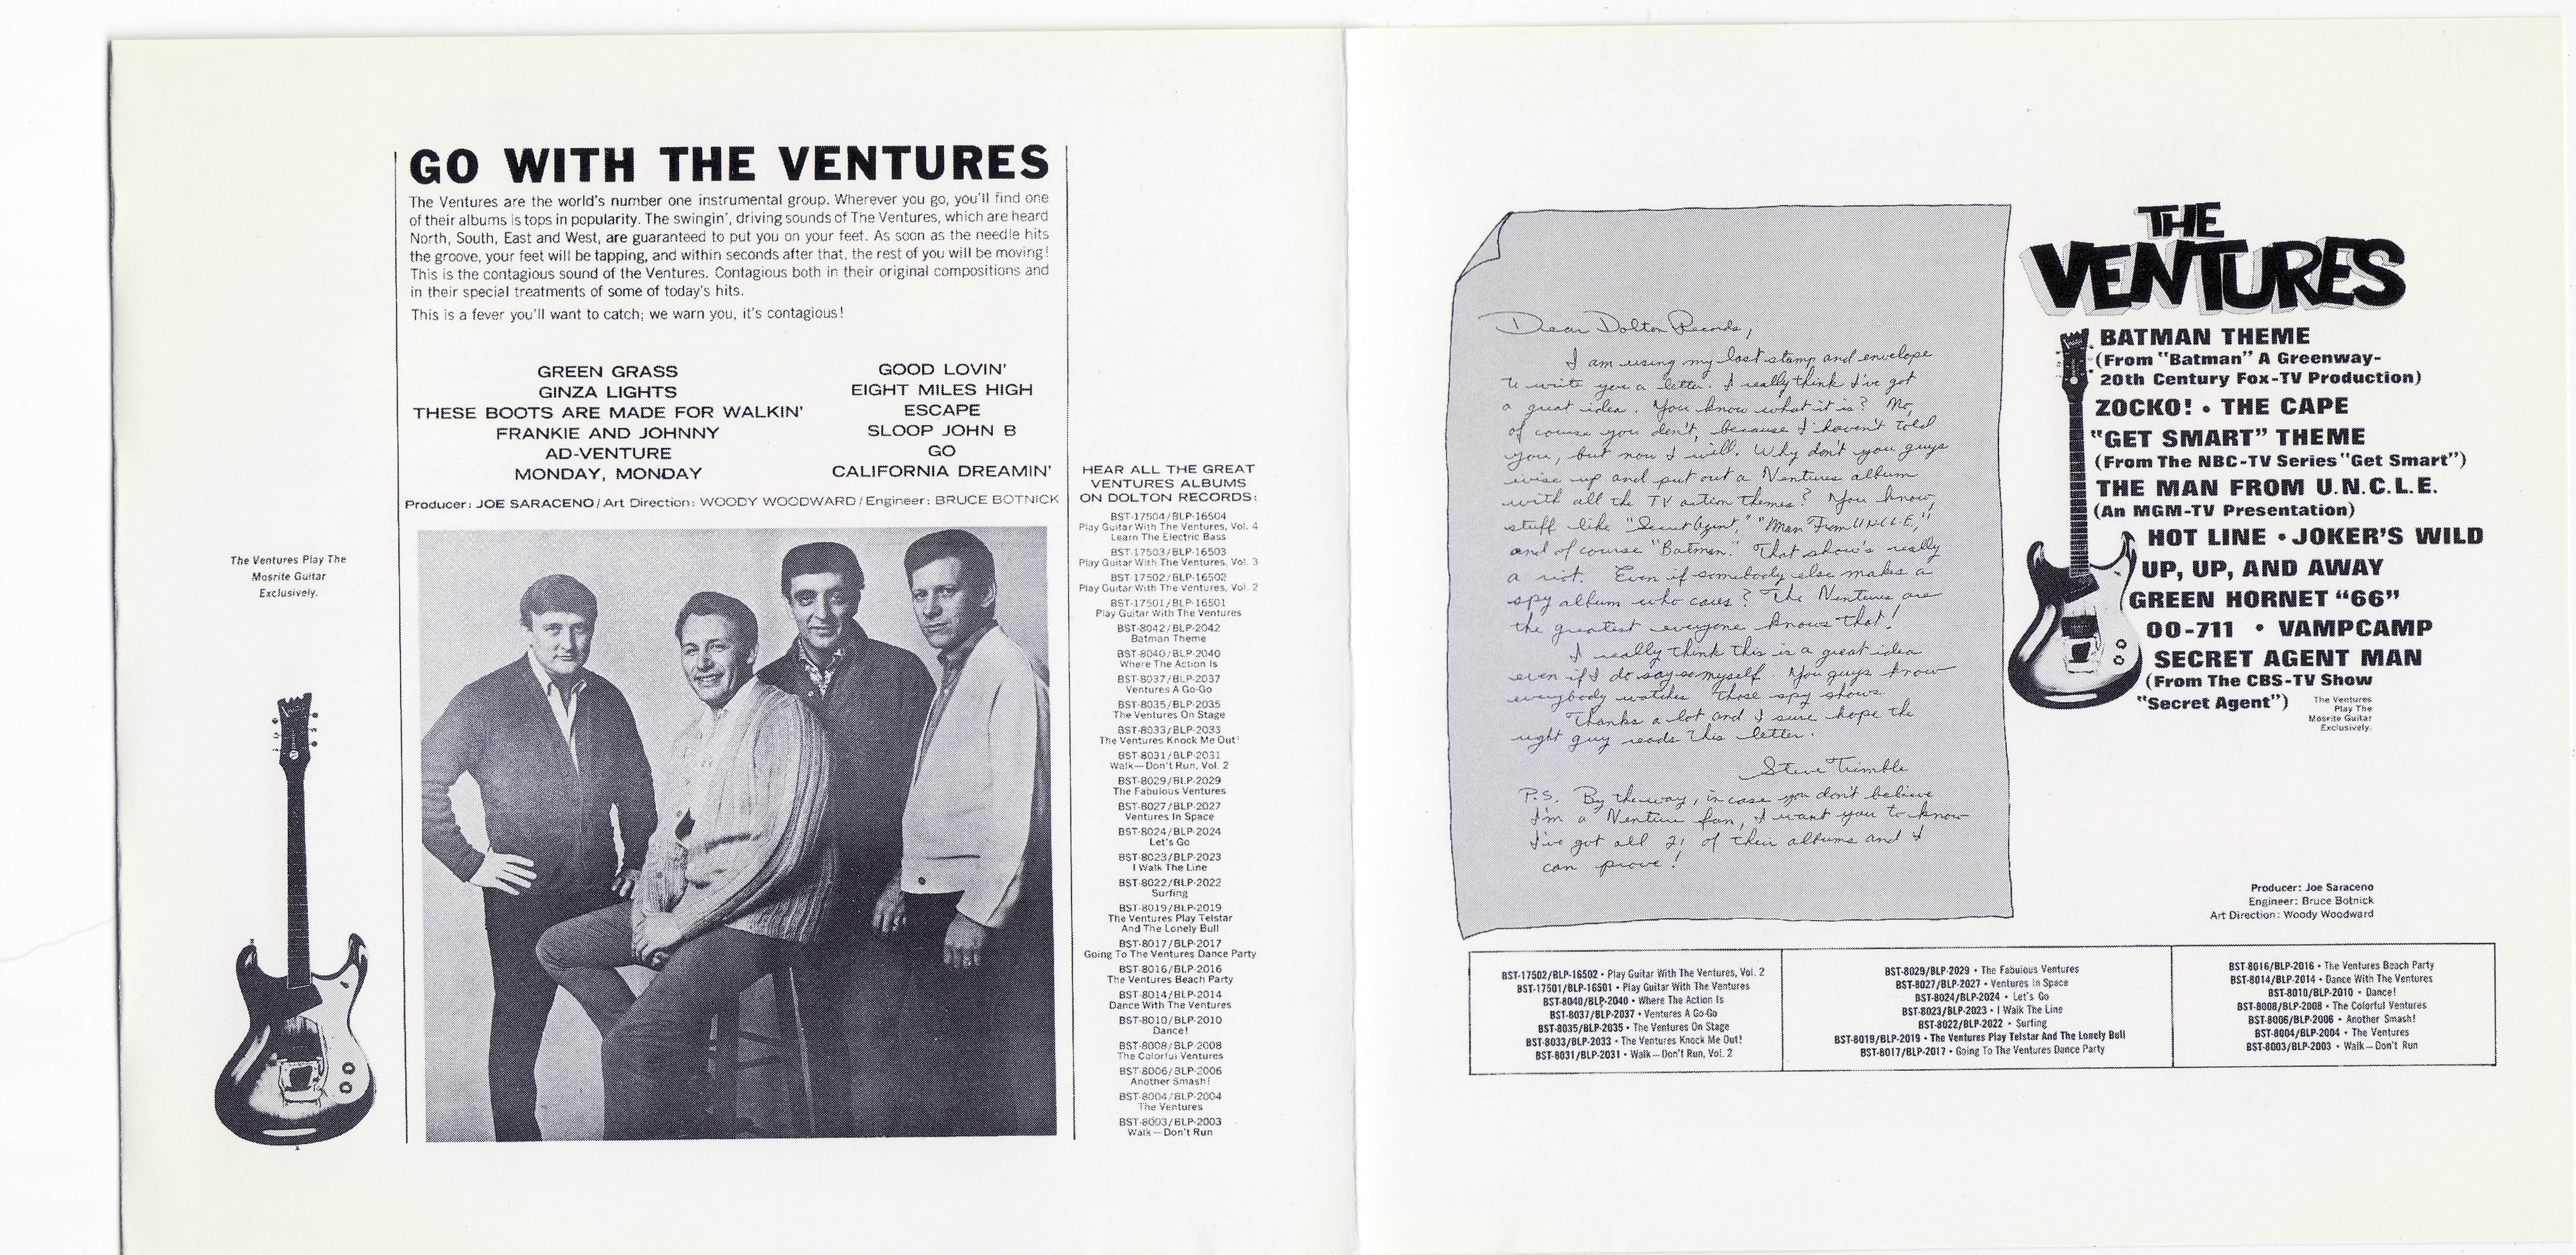 GO WITH THE VENTURES
The Ventures are the world's number one instrumental group. Wherever you go, you'll find one
of their albums is tops in popularity. The swingin', driving sounds of The Ventures, which are heard
North, South, East and West, are guaranteed to put you on your feet. As soon as the needle hits
the groove, your feet will be tapping, and within seconds after that, the rest of you will be moving!
This is the contagious sound of the Ventures. Contagious both in their original compositions and
in their special treatments of some of today's hits.
This is a fever you'll want to catch; we warn you, it's contagious!
GREEN GRASS
GINZA LIGHTS
THESE BOOTS ARE MADE FOR WALKIN'
FRANKIE AND JOHNNY
AD-VENTURE
MONDAY, MONDAY
GOOD LOVIN'
EIGHT MILES HIGH
ESCAPE
SLOOP JOHN B
GO
CALIFORNIA DREAMIN'
Producer: JOE SARACENO/Art Direction: WOODY WOODWARD/Engineer: BRUCE BOTNICK
The Ventures Play The
Mosrite Guitar
Exclusively.
HEAR ALL THE GREAT
VENTURES ALBUMS
ON DOLTON RECORDS:
BST-17504/BLP-16504
Play Guitar With The Ventures, Vol. 4
Learn The Electric Bass
BST-17503/BLP-16503
Play Guitar With The Ventures, Vol. 3
BST-17502/BLP-16502
Play Guitar With The Ventures, Vol. 2
BST-17501/BLP-16501
Play Guitar With The Ventures
BST-8042/BLP-2042
Batman Theme
BST-8040/BLP-2040
Where The Action Is
BST-8037/BLP-2037
Ventures A Go-Go
BST-8035/BLP-2035
The Ventures On Stage
BST-8033/BLP-2033
The Ventures Knock Me Out!
BST-8031/BLP-2031
Walk—Don't Run, Vol. 2
BST-8029/BLP-2029
The Fabulous Ventures
BST-8027/BLP-2027
Ventures In Space
BST-8024/BLP-2024
Let's Go
BST-8023/BLP-2023
I Walk The Line
BST-8022/BLP-2022
Surfing
BST-8019/BLP-2019
The Ventures Play Telstar
And The Lonely Bull
BST-8017/BLP-2017
Going To The Ventures Dance Party
BST-8016/BLP-2016
The Ventures Beach Party
BST-8014/BLP-2014
Dance With The Ventures
BST-8010/BLP-2010
Dance!
BST-8008/BLP-2008
The Colorful Ventures
BST-8006/BLP-2006
Another Smash!
BST-8004/BLP-2004
The Ventures
BST-8003/BLP-2003
Walk—Don't Run
Dear Dolton Records,
I am using my last stamp and envelope
to write you a letter. I really think I've got
a great idea. You know what it is? No,
of course you don't, because I haven't told
you, but now I will. Why don't you guys
wise up and put out a Ventures album
with all the TV action themes? You know,
stuff like "Secret Agent," "Man From U.N.C.L.E.,"
and of course "Batman." That show's really
a riot. Even if somebody else makes a
spy album who cares? The Ventures are
the greatest everyone knows that!
I really think this is a great idea
even if I do say so myself. You guys know
everybody watches those spy shows.
Thanks a lot and I sure hope the
right guy reads this letter.
Steve Trimble
P.S. By the way, in case you don't believe
I'm a Venture fan, I want you to know
I've got all 21 of their albums and I
can prove!
THE
VENTURES
BATMAN THEME
(From "Batman" A Greenway-
20th Century Fox-TV Production)
ZOCKO! • THE CAPE
"GET SMART" THEME
(From The NBC-TV Series "Get Smart")
THE MAN FROM U.N.C.L.E.
(An MGM-TV Presentation)
HOT LINE • JOKER'S WILD
UP, UP, AND AWAY
GREEN HORNET "66"
00-711 • VAMPCAMP
SECRET AGENT MAN
(From The CBS-TV Show
"Secret Agent")
The Ventures
Play The
Mosrite Guitar
Exclusively.
Producer: Joe Saraceno
Engineer: Bruce Botnick
Art Direction: Woody Woodward
BST-17502/BLP-16502 • Play Guitar With The Ventures, Vol. 2
BST-17501/BLP-16501 • Play Guitar With The Ventures
BST-8040/BLP-2040 • Where The Action Is
BST-8037/BLP-2037 • Ventures A Go-Go
BST-8035/BLP-2035 • The Ventures On Stage
BST-8033/BLP-2033 • The Ventures Knock Me Out!
BST-8031/BLP-2031 • Walk—Don't Run, Vol. 2
BST-8029/BLP-2029 • The Fabulous Ventures
BST-8027/BLP-2027 • Ventures In Space
BST-8024/BLP-2024 • Let's Go
BST-8023/BLP-2023 • I Walk The Line
BST-8022/BLP-2022 • Surfing
BST-8019/BLP-2019 • The Ventures Play Telstar And The Lonely Bull
BST-8017/BLP-2017 • Going To The Ventures Dance Party
BST-8016/BLP-2016 • The Ventures Beach Party
BST-8014/BLP-2014 • Dance With The Ventures
BST-8010/BLP-2010 • Dance!
BST-8008/BLP-2008 • The Colorful Ventures
BST-8006/BLP-2006 • Another Smash!
BST-8004/BLP-2004 • The Ventures
BST-8003/BLP-2003 • Walk—Don't Run